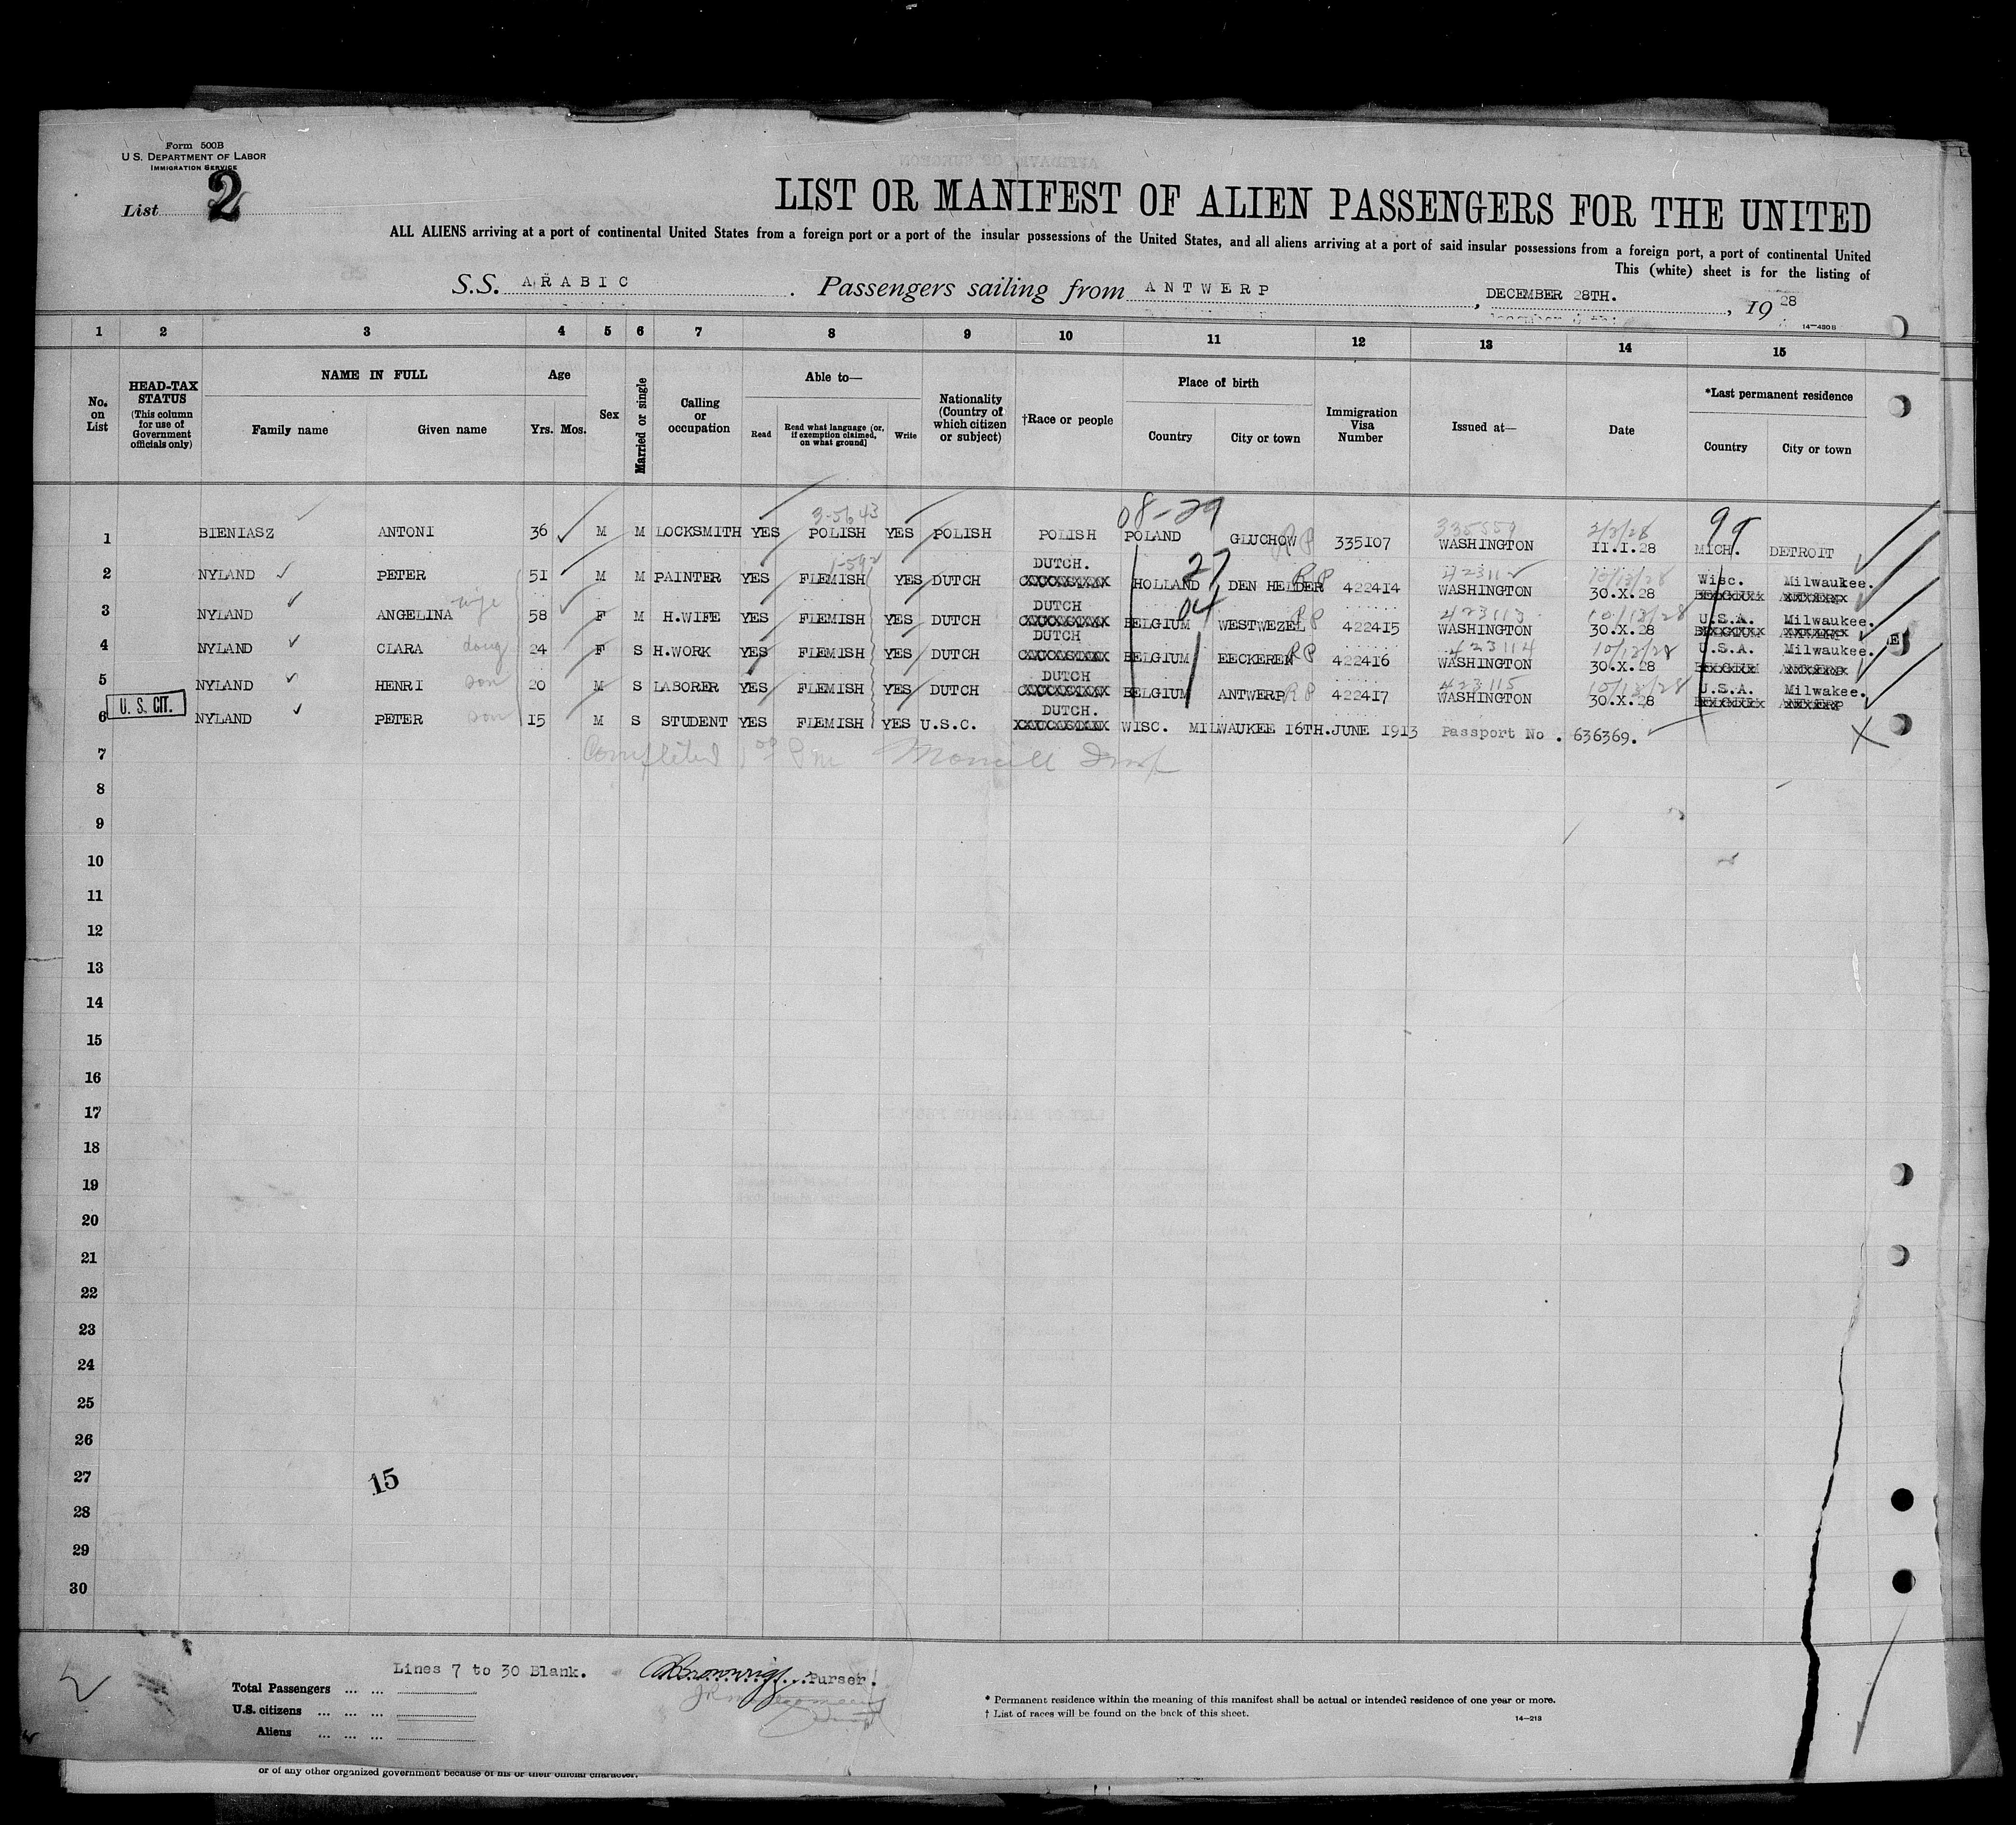 Form 500B
U.S. DEPARTMENT OF LABOR
IMMIGRATION SERVICE
List 2
LIST OR MANIFEST OF ALIEN PASSENGERS FOR THE UNITED
ALL ALIENS arriving at a port of continental United States from a foreign port or a port of the insular possessions of the United States, and all aliens arriving at a port of said insular possessions from a foreign port, a port of continental United
This (white) sheet is for the listing of
S.S. ARABIC. Passengers sailing from ANTWERP, DECEMBER 28TH., 19 28
14—430B
1 2 3 4 5 6 7 8 9 10 11 12 13 14 15
No. on List
HEAD-TAX STATUS (This column for use of Government officials only)
NAME IN FULL
Family name Given name
Age
Yrs. Mos.
Sex
Married or single
Calling or occupation
Able to—
Read Read what language (or, if exemption claimed, on what ground) Write
Nationality (Country of which citizen or subject)
†Race or people
Place of birth
Country City or town
Immigration Visa Number
Issued at—
Date
*Last permanent residence
Country City or town
08-29 99
1 BIENIASZ ANTONI 36 M M LOCKSMITH YES POLISH YES POLISH POLISH POLAND GLUCHOW RP 335107 WASHINGTON 2/3/28 II.I.28 MICH. DETROIT
2 NYLAND PETER 51 M M PAINTER YES FLEMISH YES DUTCH DUTCH. HOLLAND 27 DEN HELDER RP 422414 423112 WASHINGTON 10/13/28 30.X.28 Wisc. Milwaukee.
3 NYLAND ANGELINA wife 58 F M H.WIFE YES FLEMISH YES DUTCH DUTCH BELGIUM 04 WESTWEZEL RP 422415 423113 WASHINGTON 10/13/28 30.X.28 U.S.A. Milwaukee.
4 NYLAND CLARA daug 24 F S H.WORK YES FLEMISH YES DUTCH DUTCH BELGIUM EECKEREN RP 422416 423114 WASHINGTON 10/13/28 30.X.28 U.S.A. Milwaukee.
5 NYLAND HENRI son 20 M S LABORER YES FLEMISH YES DUTCH DUTCH BELGIUM ANTWERP RP 422417 423115 WASHINGTON 10/13/28 30.X.28 U.S.A. Milwakee.
U. S. CIT.
6 NYLAND PETER son 15 M S STUDENT YES FLEMISH YES U.S.C. DUTCH. WISC. MILWAUKEE 16TH.JUNE 1913 Passport No. 636369.
7 Completed
8
9
10
11
12
13
14
15
16
17
18
19
20
21
22
23
24
25
26
27
15
28
29
30
Lines 7 to 30 Blank.
Purser.
Total Passengers ... ...
U.S. citizens ... ... ...
Aliens ... ... ...
* Permanent residence within the meaning of this manifest shall be actual or intended residence of one year or more.
† List of races will be found on the back of this sheet.
14—213
or of any other organized government because of his or their official character.